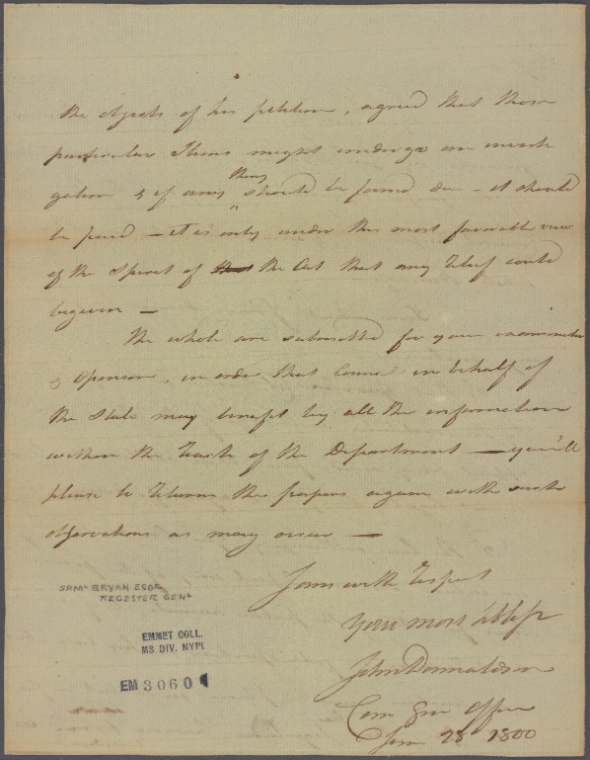 the objects of his petition, agreed that those
particular Items might undergo an investi
gation & if any thing should be found due - it should
be paid - it is only under the most favorable view
of the Spirit of the the Act that any Relief could
be given -
The whole are submitted for your examination
& Opinion, in order that Council in behalf of
the State may benefit by all the information
within the Reach of the Department - you'll
please to Return the papers again with such
observations as may occur -
I am with Respect
Your most obt Sr
John Donnaldson
Com Gen Office
Jan 23 1800
SAML BRYAN ESQR
REGESTER GENL
EMMET COLL.
MS. DIV. NYPL
EM 3060